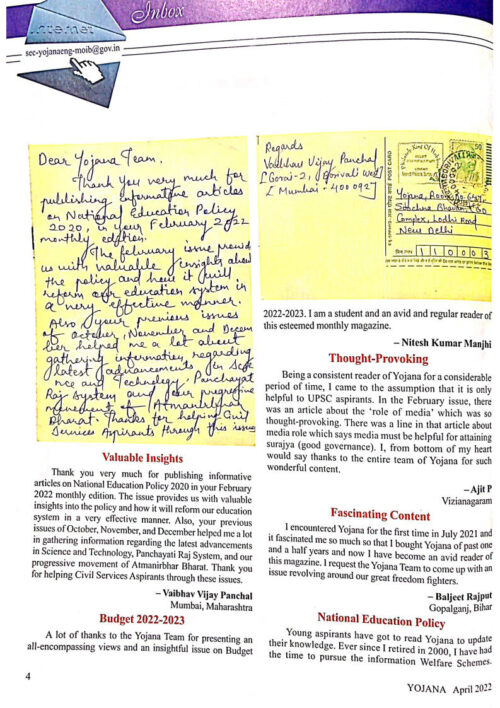 Inbox
Internet
sec-yojanaeng-moib@gov.in
Dear Yojana Team.
Thank you very much for
publishing informative articles
on National Education Policy
2020, in your February 2022
monthly edition.
The february issue provid
us with valuable insights about
the policy and how it will
reform our education system in
a very effective manner.
Also, your previous issues
of october, November and Decem
ber helped me a lot about
gathering information regarding
latest advancements in Scie
nce and Technology, Panchayat
Raj System and your progressive
movement of Atmanirbhar
Bharat. Thanks for helping Civil
Services Aspirants through this issue
Regards
Vaibhav Vijay Panchal
[Gorai-2, Borivali West
[Mumbai - 400092]
50
Yojana, Room No 648,
Soochna Bhawan, CGO
Complex, Lodhi Road
New Delhi
110003
Valuable Insights
Thank you very much for publishing informative
articles on National Education Policy 2020 in your February
2022 monthly edition. The issue provides us with valuable
insights into the policy and how it will reform our education
system in a very effective manner. Also, your previous
issues of October, November, and December helped me a lot
in gathering information regarding the latest advancements
in Science and Technology, Panchayati Raj System, and our
progressive movement of Atmanirbhar Bharat. Thank you
for helping Civil Services Aspirants through these issues.
– Vaibhav Vijay Panchal
Mumbai, Maharashtra
Budget 2022-2023
A lot of thanks to the Yojana Team for presenting an
all-encompassing views and an insightful issue on Budget
2022-2023. I am a student and an avid and regular reader of
this esteemed monthly magazine.
– Nitesh Kumar Manjhi
Thought-Provoking
Being a consistent reader of Yojana for a considerable
period of time, I came to the assumption that it is only
helpful to UPSC aspirants. In the February issue, there
was an article about the ‘role of media’ which was so
thought-provoking. There was a line in that article about
media role which says media must be helpful for attaining
surajya (good governance). I, from bottom of my heart
would say thanks to the entire team of Yojana for such
wonderful content.
– Ajit P
Vizianagaram
Fascinating Content
I encountered Yojana for the first time in July 2021 and
it fascinated me so much so that I bought Yojana of past one
and a half years and now I have become an avid reader of
this magazine. I request the Yojana Team to come up with an
issue revolving around our great freedom fighters.
– Baljeet Rajput
Gopalganj, Bihar
National Education Policy
Young aspirants have got to read Yojana to update
their knowledge. Ever since I retired in 2000, I have had
the time to pursue the information Welfare Schemes.
4
YOJANA April 2022